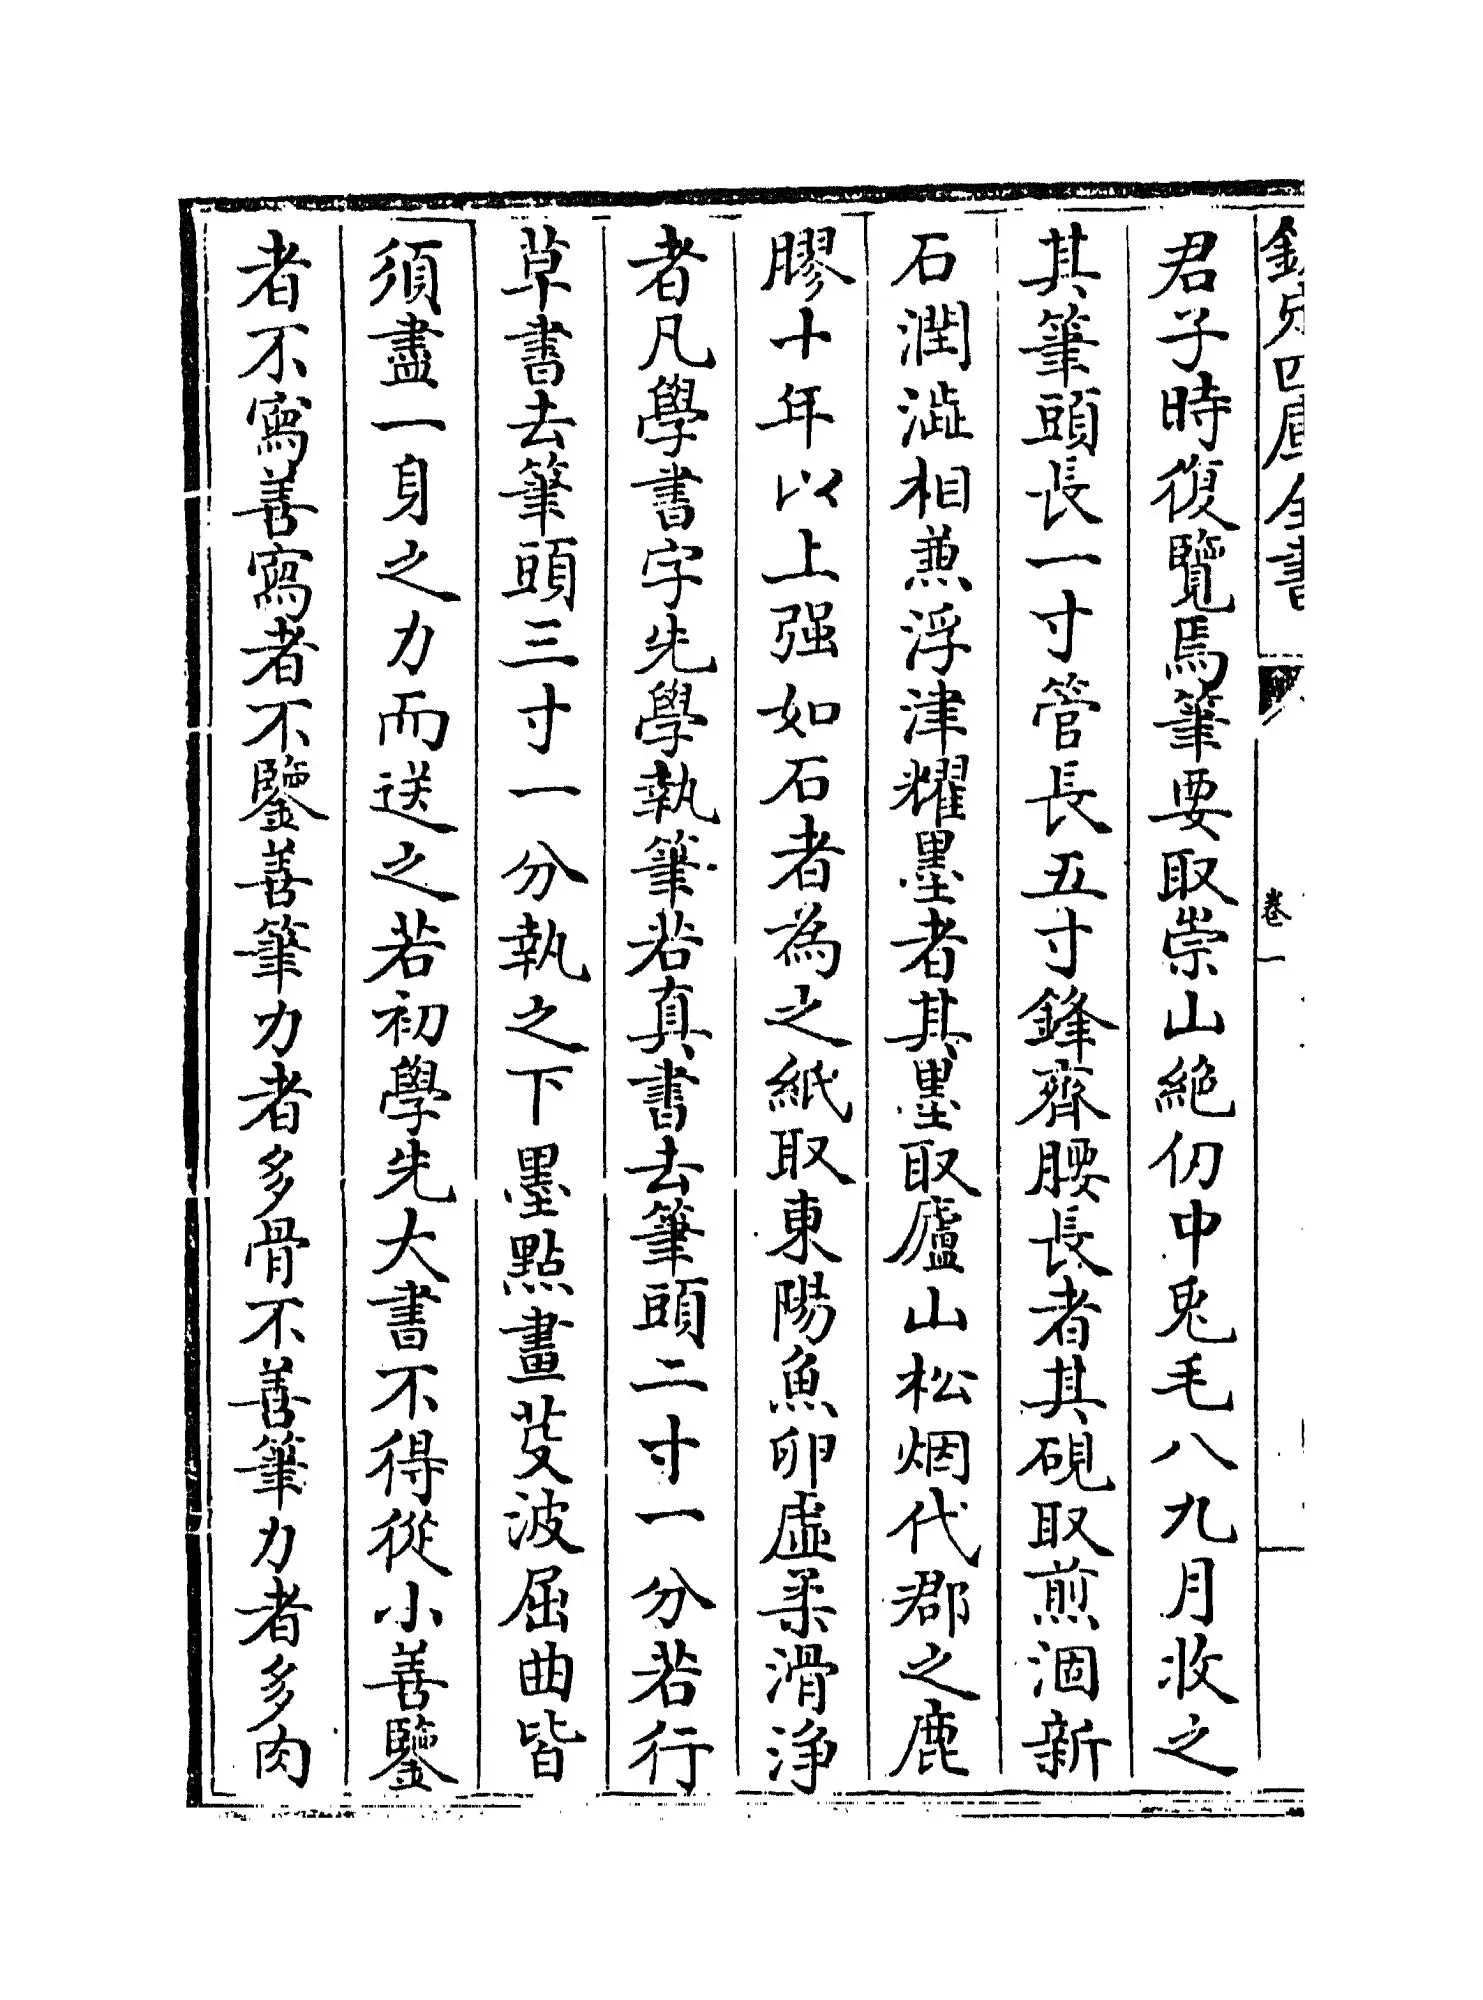 欽定四庫全書
卷一
君子時復覽焉筆要取崇山絶仞中兎毛八九月收之
其筆頭長一寸管長五寸鋒齊腰長者其硯取煎涸新
石潤澁相兼浮津耀墨者其墨取廬山松烟代郡之鹿
膠十年以上强如石者為之紙取東陽魚卵虚柔滑淨
者凡學書字先學執筆若真書去筆頭二寸一分若行
草書去筆頭三寸一分執之下墨點畫芟波屈曲皆
須盡一身之力而送之若初學先大書不得從小善鑒
者不寫善寫者不鑒善筆力者多骨不善筆力者多肉